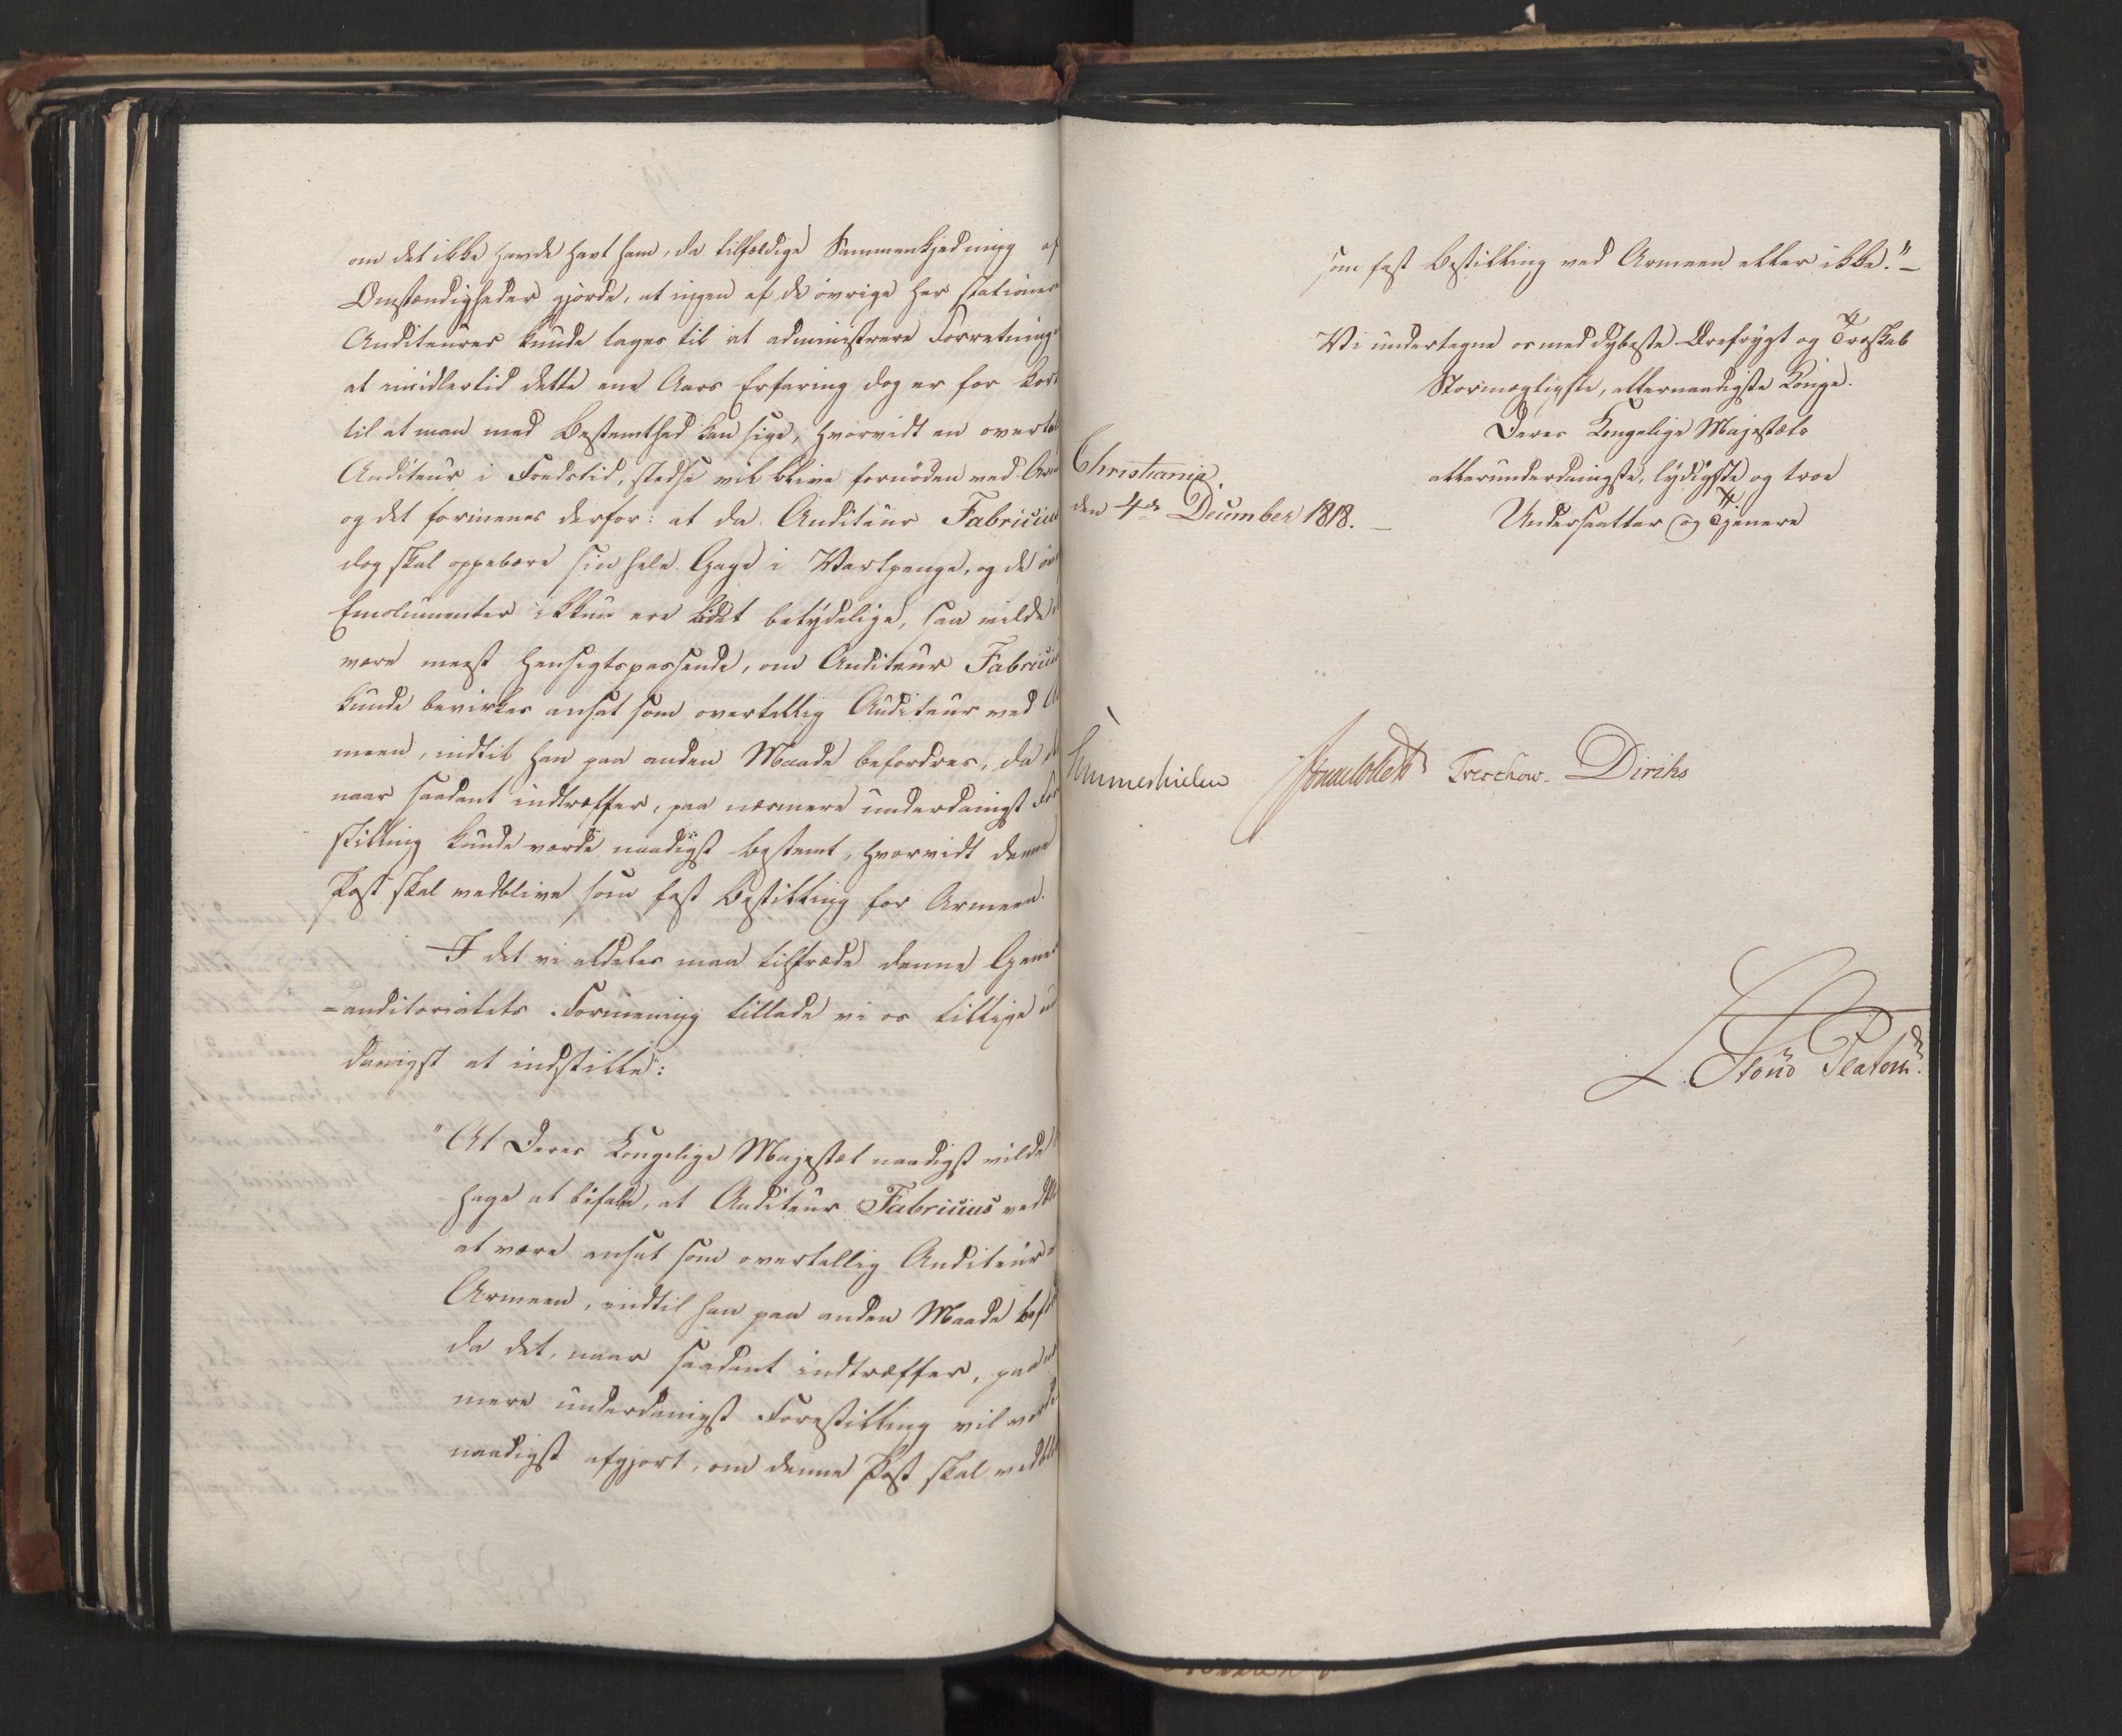 om det ikke havde havt ham, da tilfældige Sammenkjedning af
Omstændigheder gjorde, at ingen af de øvrige her stationer
Auditeurer kunde tages til at administrere Forretning
at imidlertid dette ene Aars Erfaring dog er for kort
til at man med Bestemthed kan sige, hvorvidt en overtal
Auditeur i Fredstid, stedse vil blive fornöden ved Arm
og det formenes derfor: at da Auditeur Fabricius
dog skal oppebære sin hele Gage i Vartpenge, og de öv
Emolumenter ikkun ere lidet betydelige, saa vilde
være meest hensigtspassende, om Auditeur Fabricius
kunde bevirkes ansat som overtallig Auditeur ved Ar
meen, indtil han paa anden Maade befordres, da
naar saadant indtræffer, paa nærmere underdanigst For
stilling kunde vorde naadigst bestemt, hvorvidt denne
Post skal vedblive som fast Bestilling for Armeen.
I det vi aldeles maa tiltræde denne Gener
=auditoriatets Formening tillade vi os tillige un
danigst at indstille:
"At Deres Kongelige Majestæt naadigst vilde
hage at bifalde, at Auditeur Fabricius vedbl
at være ansat som overtallig Auditeur
Armeen, indtil han paa anden Maade bef
da det, naar saadant indtræffer, paa
mere underdanigst Forestilling vil vorde
naadigst afgjort, om denne Post skal vedbl
som fast Bestilling ved Armeen eller ikke."_
Vi undertegne os med dybeste Ærefrygt og Troskab
Stormægtigste, allernaadigste Konge.
Deres Kongelige Majestæts
allerunderdanigste, lydigste og troe
Undersaatter og Tjenere
Christiania,
den 4de December 1818._
Hummerhielm Sommerfeldt Treschow. Diriks